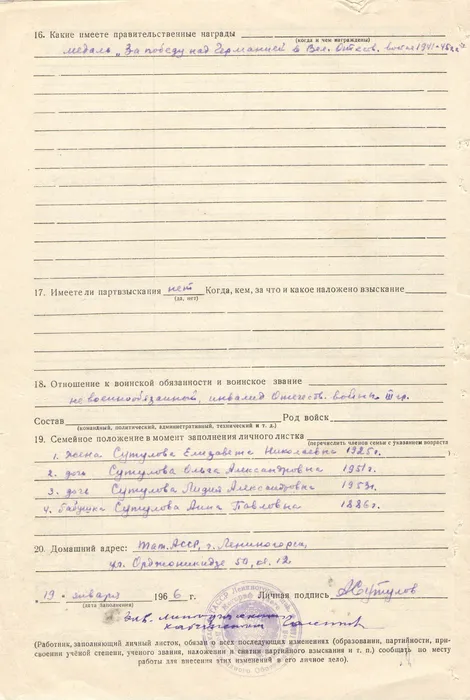 16. Какие имеете правительственные награды
(когда и чем награждены)
медаль „За победу над Германией в Вел. Отечеств. войне 1941-45 гг."
17. Имеете ли партвзыскания нет Когда, кем, за что и какое наложено взыскание
(да, нет)
18. Отношение к воинской обязанности и воинское звание
невоеннообязанный, инвалид Отечеств. войны III гр.
Состав Род войск
(командный, политический, административный, технический и т. д.)
19. Семейное положение в момент заполнения личного листка
(перечислить членов семьи с указанием возраста
1. жена Сутулова Елизавета Николаевна 1925 г.
2. дочь Сутулова Ольга Александровна 1951 г.
3. дочь Сутулова Лидия Александровна 1953 г.
4. бабушка Сутулова Анна Павловна 1886 г.
20. Домашний адрес: Тат. АССР, г. Лениногорск,
ул. Орджоникидзе
19 января 1966 г. Личная подпись АСутулов
(дата заполнения)
Зав.
кабинетом
(Работник, заполняющий личный листок, обязан о всех последующих изменениях (образовании, партийности, при-
своении учёной степени, ученого звания, наложении и снятии партийного взыскания и т. п.) сообщать по месту
работы для внесения этих изменений в его личное дело).